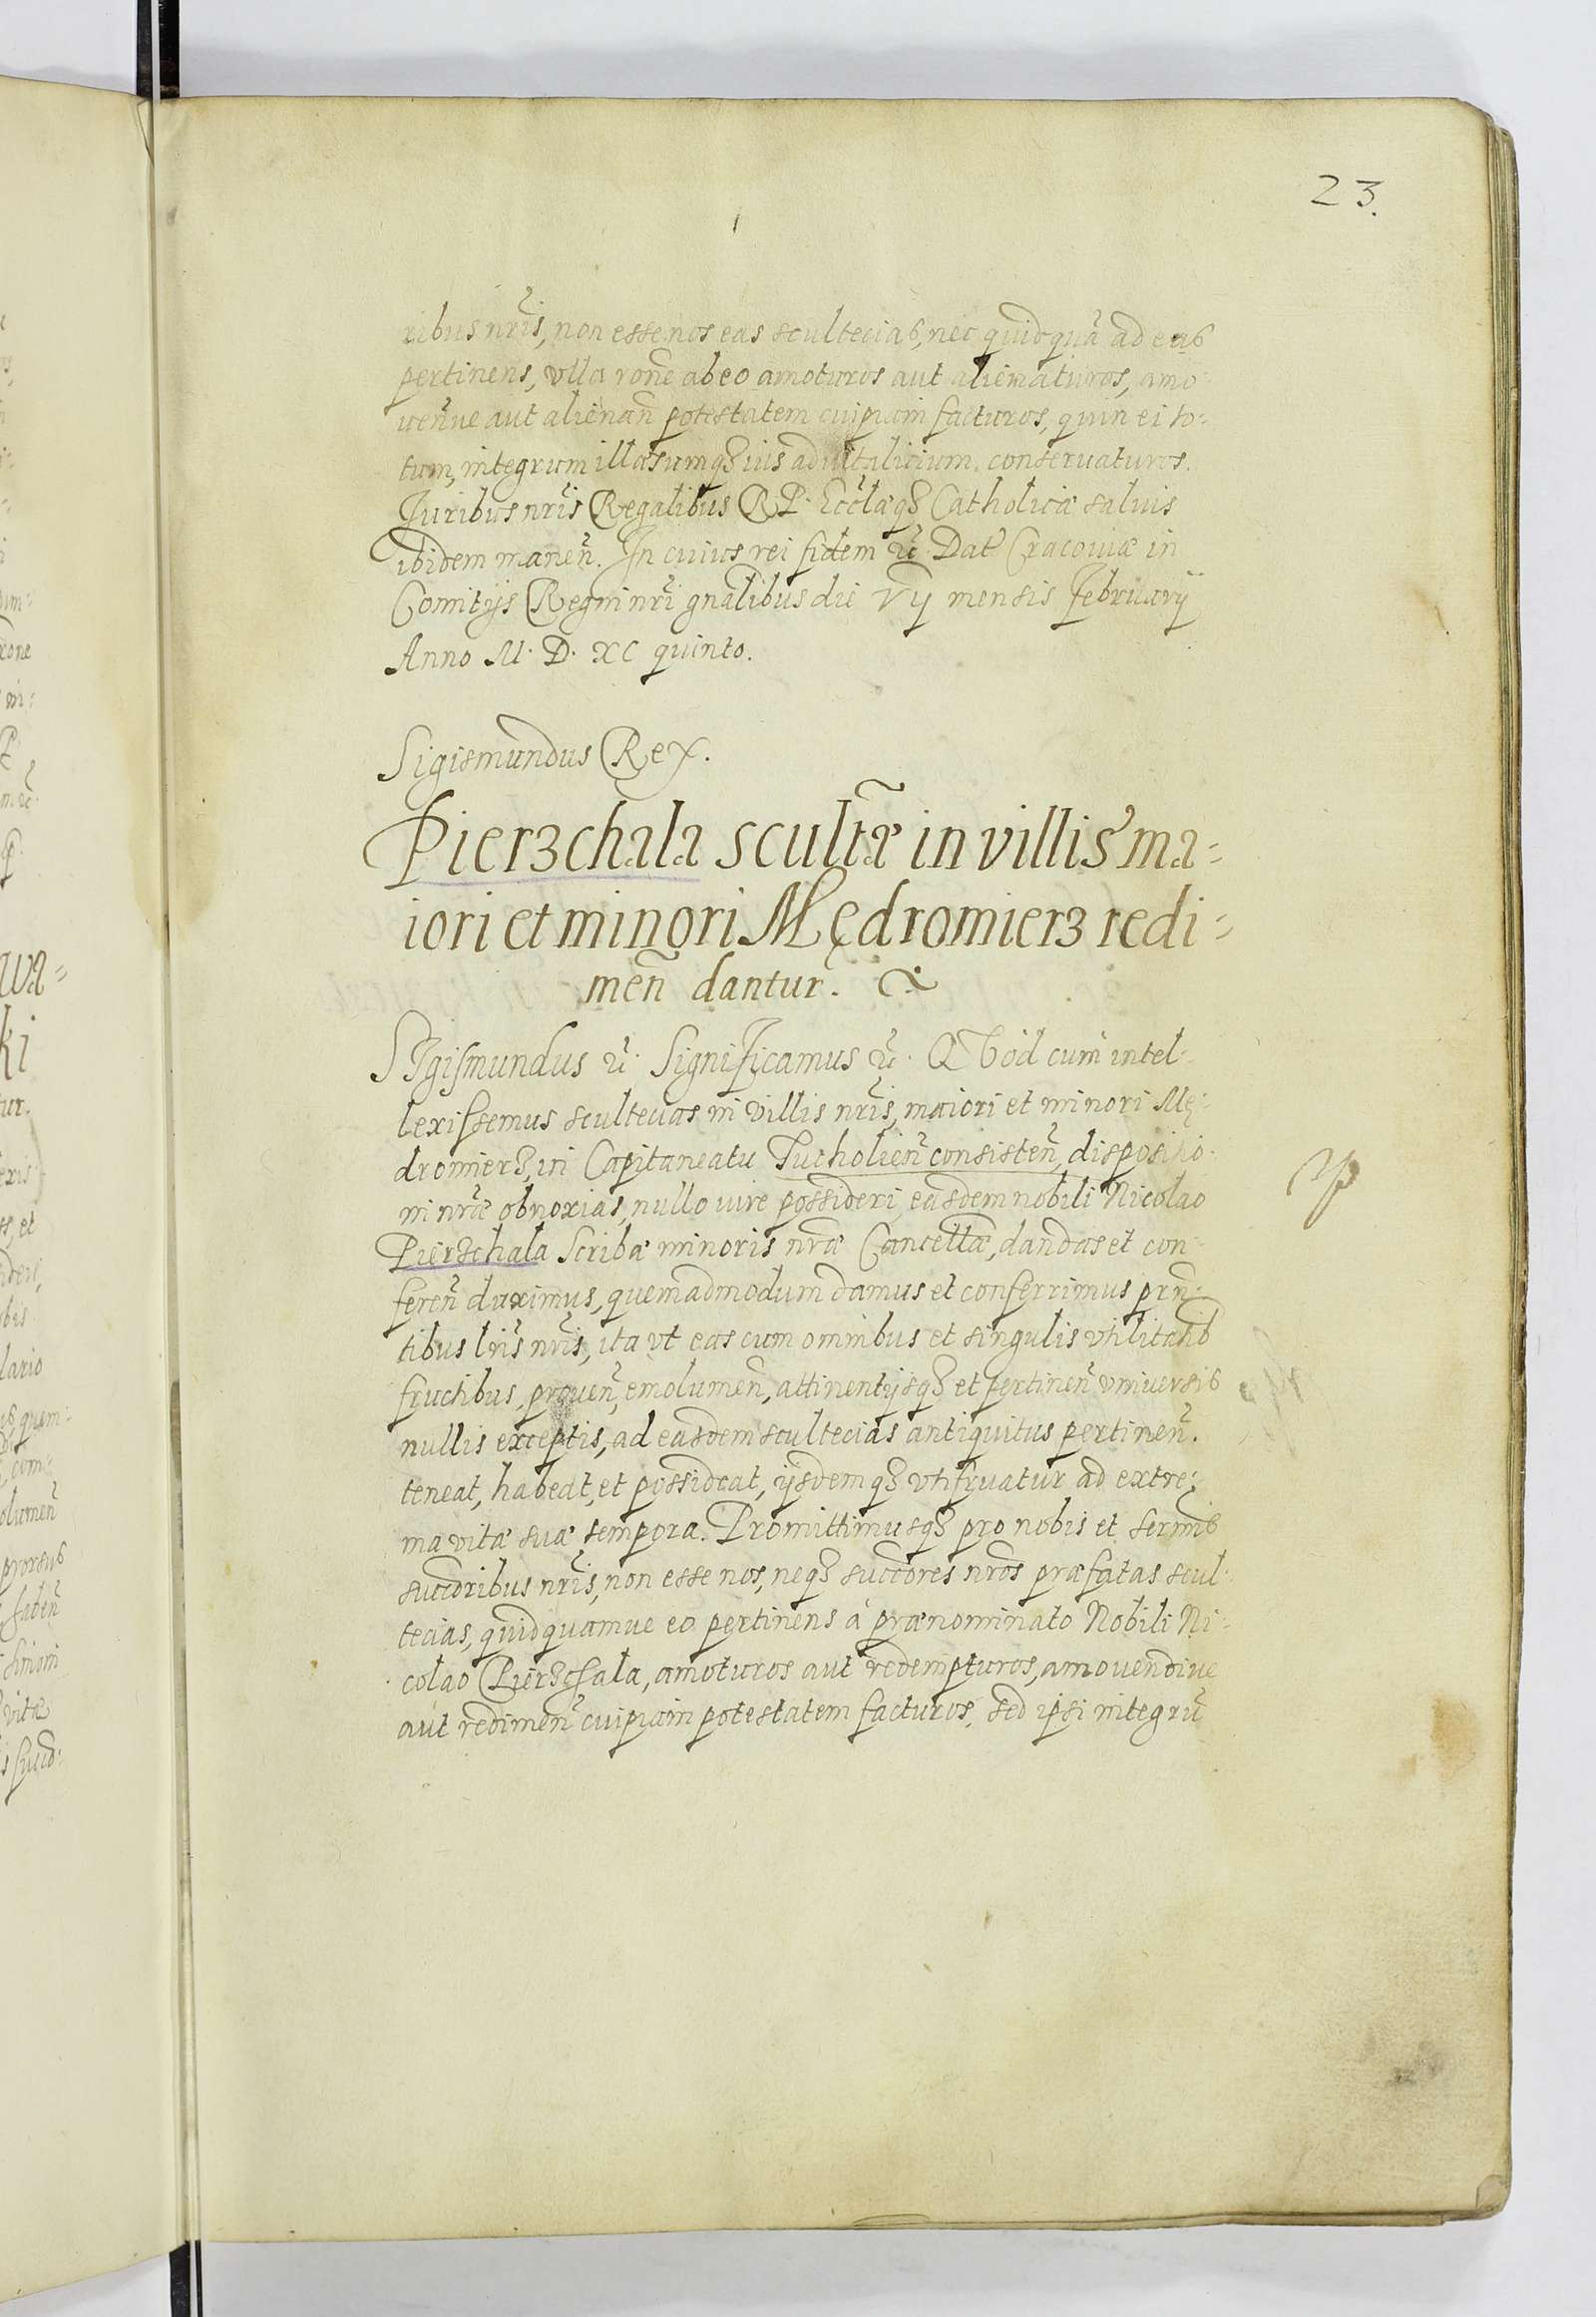 23.
ribus nr̃is, non esse nos eas scultecias, nec quidquã ad eas
pertinens, vlla rõne ab eo amoturos aut alienaturos, amo-
uen̄ue aut alienan̄ potestatem cuipiam facturos, quin ei to-
tum, integrum illæsumq3 ius aduitalitium conseruaturos.
Juribus nr̃is Regalibus RP. Ecclæq3 Catholicæ saluis
ibidem manen̄. In cuius rei fidem &c̃ Dat̃ Cracouiæ in
Comitijs Regni nr̃i gñalibus die Vij mensis Februarij
Anno M. D. XC quinto.
Sigismundus Rex.
Pierzchala scultæ̃ in villis ma-
iori et minori Mędromierz redi-
men̄ dantur.
SIgismundus &c̃. Significamus &c̃. QVod cum intel-
lexissemus scultecias in villis nr̃is, maiori et minori Mę-
dromierz, in Capitaneatu Tucholien̄ consisten̄, dispositio-
ni nr̃æ obnoxias, nullo iure possideri, easdem nobili Nicolao
Pierzchala Scribæ minoris nr̃æ Cancellæ̃, dandas et con-
feren̄ duximus, quemadmodum damus et conferrimus prñ-
tibus lr̃is nr̃is, ita vt eas cum omnibus et singulis vtilitatib
fructibus, prouen̄, emolumen̄, attinentijsq3 et pertinen̄ vniuersis
nullis exceptis, ad easdem scultecias antiquitus pertinen̄.
teneat, habeat, et possideat, ijsdemq3 vtifruatur ad extre-
ma vitæ suæ tempora. Promittimusq3 pro nobis et serm̃is
succõribus nr̃is, non esse nos, neq3 succõres nr̃os præfatas scul-
tecias, quidquamue eo pertinens à prænominato Nobili Ni-
colao Pierzchala, amoturos aut redempturos, amouendiue
aut redimen̄ cuipiam potestatem facturos, sed ipsi integrũ